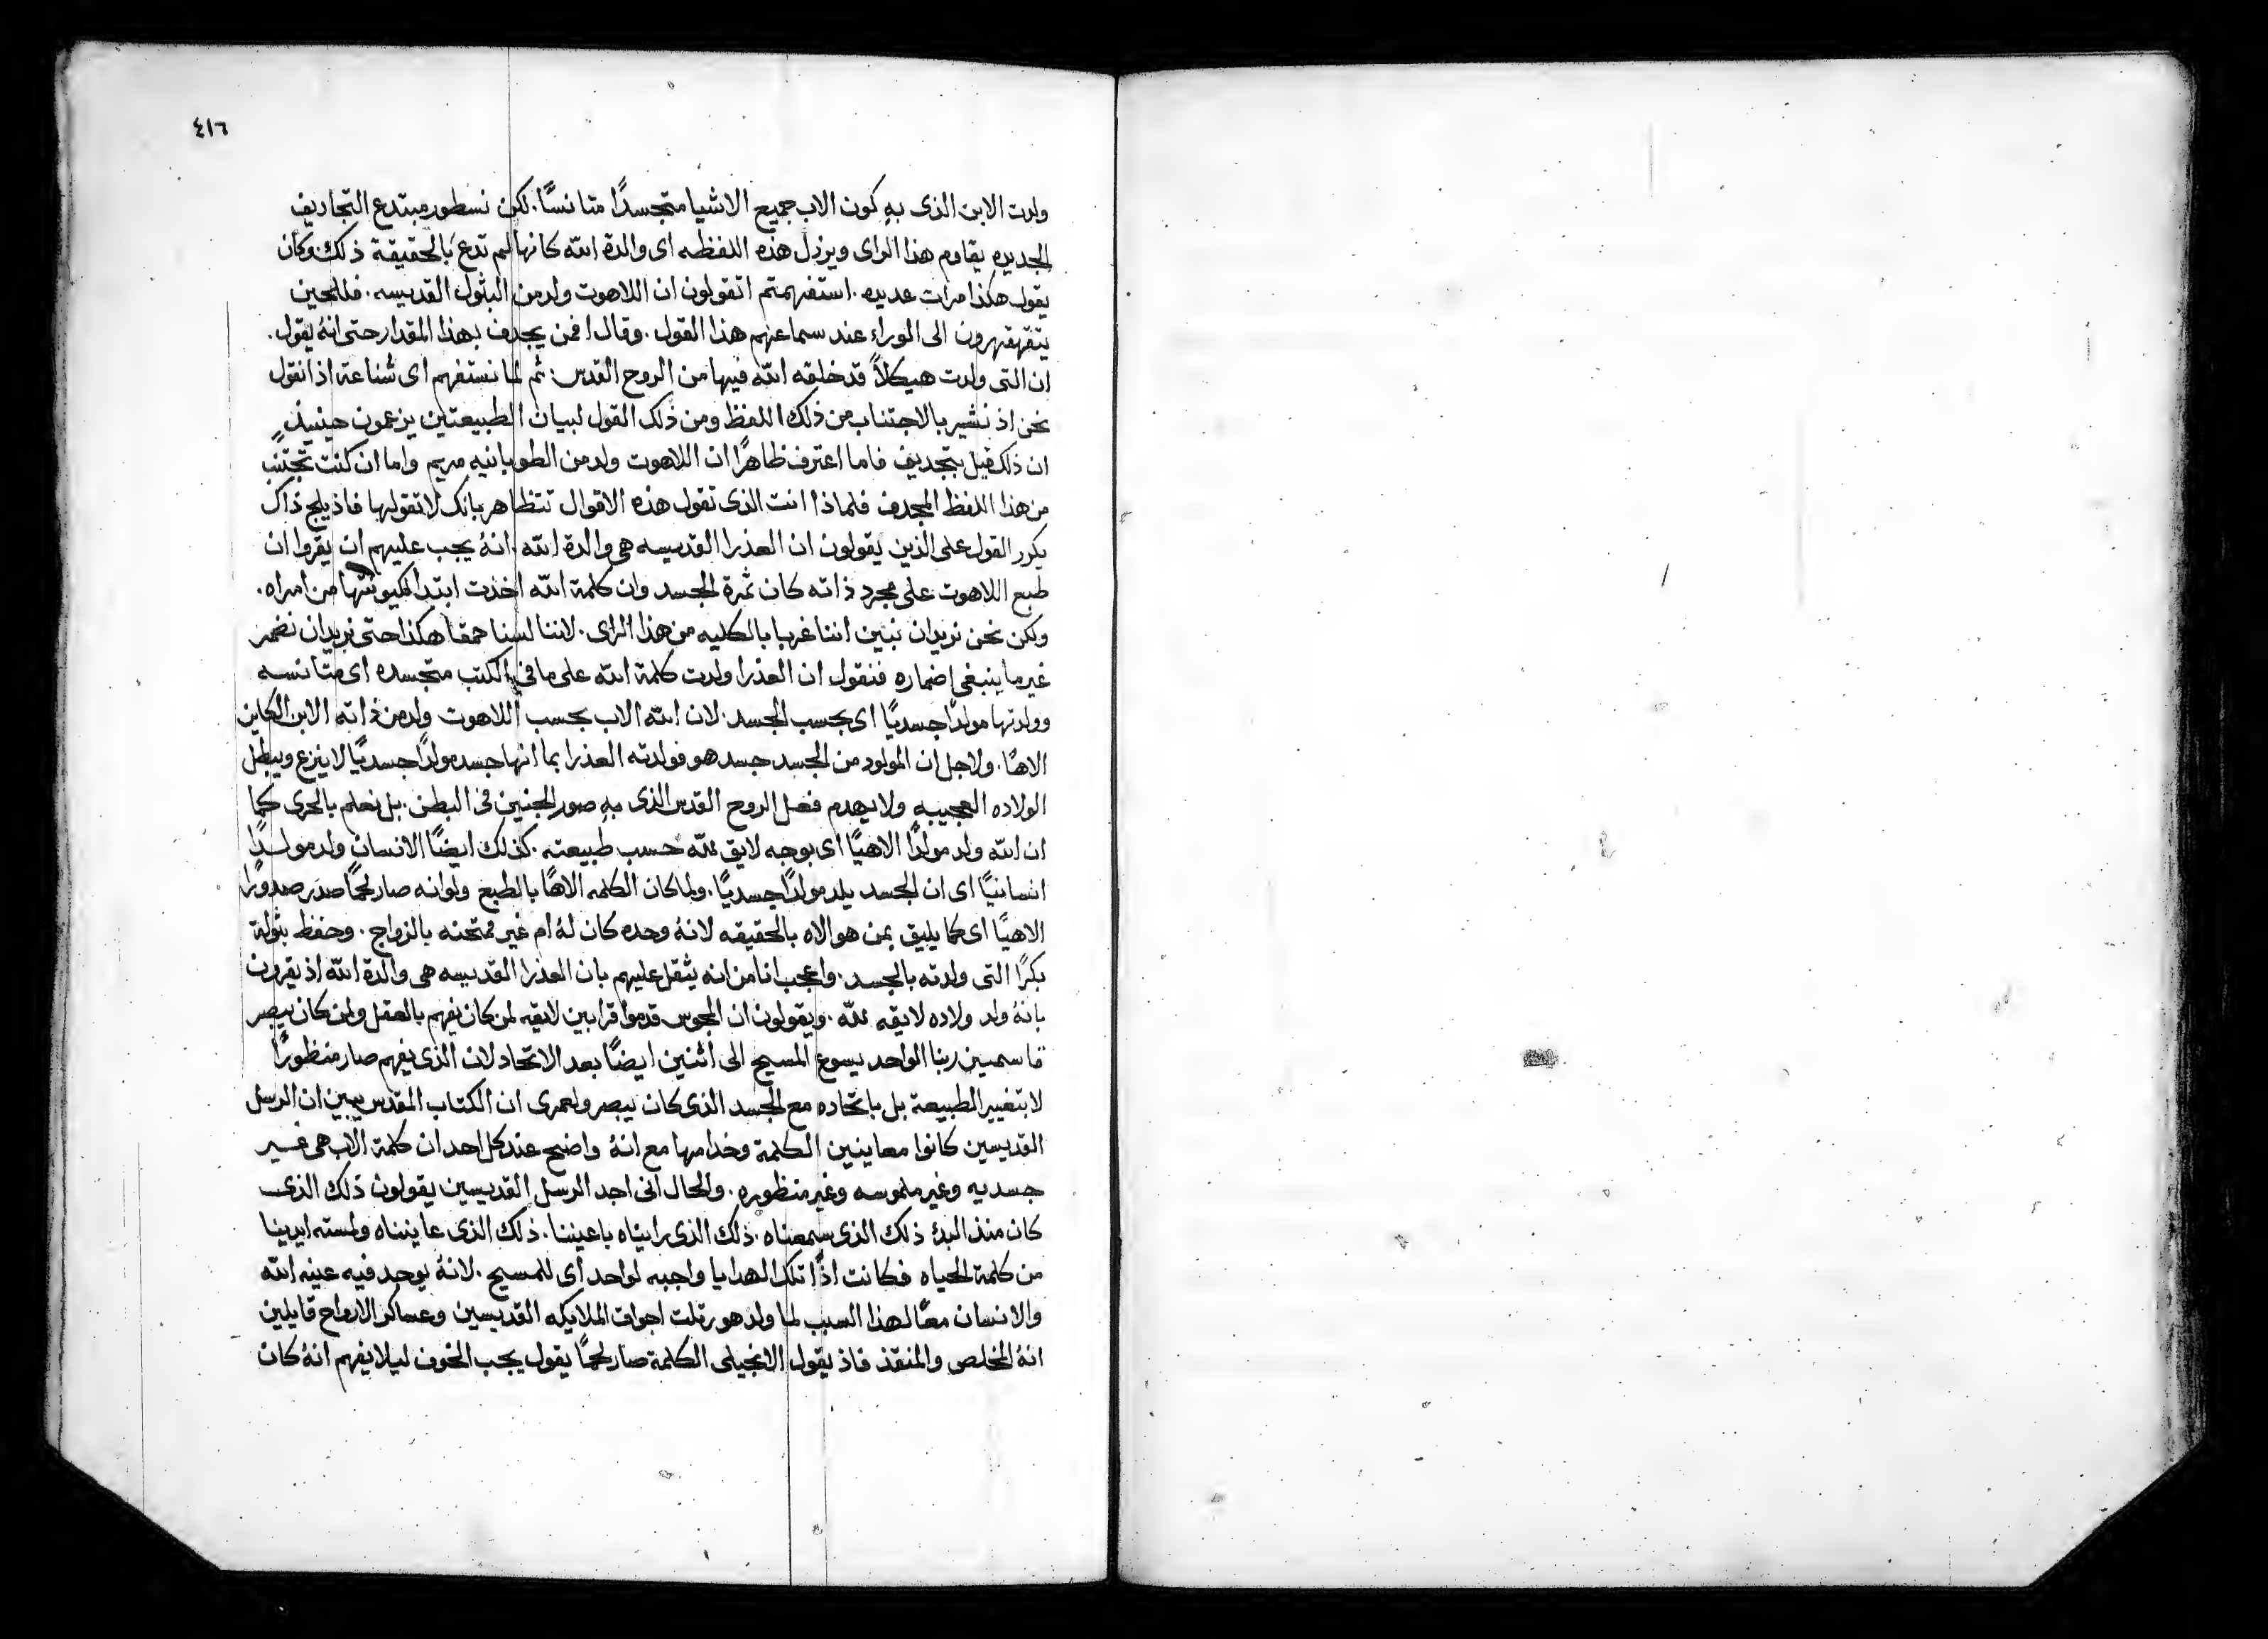 ٤١٦
ولدت الابن الذى به كون الاب جميع الاشيا متجسدًا متانسًا. لكن نسطور مبتدع التجاديف
الجديده يقاوم هذا الراى ويرذل هذه اللفظه اى والدة الله كانها لم تدع بالحقيقة ذلك وكان
يقول هكذا مرات عديده. استفهمتم اتقولون ان اللاهوت ولد من البثول القديسه. فللحين
يتقهقهرون الى الوراء عند سماعهم هذا القول. وقال افمن يجدف بهذا المقدار حتى انهُ يقول.
ان التى ولدت هيكلاً قد خلقه الله فيها من الروح القدس: ثم لما نستفهم اى شناعة اذا نقول
نحن اذ نشير بالاجتناب من ذلك اللفظ ومن ذلك القول لبيان الطبيعتين يزعمون حينيذٍ
ان ذلك قيل بتجديف فاما اعترف ظاهرًا ان اللاهوت ولد من الطوبانيه مريم واما ان كنت تجتنب
من هذا اللفظ المجدف فلماذا انت الذى تقول هذه الاقوال تتظاهر بانك لا تقولها فاذ يلج ذاك
يكرر القول على الذين يقولون ان العذرا القديسه هى والدة الله. انهُ يجب عليهم ان يقروا ان
طبع اللاهوت على مجرد ذاته كان ثمرة الجسد وان كلمة الله اخذت ابتدا لكيونتها من امراه.
ولكن نحن نريد ان نبين اننا غربا بالكليه من هذا الراى. لاننا لسنا حمقا هكذا حتى نريد ان نضمر
غير ما ينبغى اضماره فنقول ان العذرا ولدت كلمة الله على ما فى الكتب متجسده اى متانسه
وولدتها مولدًا جسديًا اى بحسب الجسد. لان الله الاب بحسب اللاهوت ولد من ذاته الابن الكاين
الاهًا. ولاجل ان المولود من الجسد جسد هو فولدته العذرا بما انها جسد مولدًا جسديًا لا ينزع ويبطل
الولاده العجيبه ولا يهدم فعل الروح القدس الذى به صور الجنين فى البطن. بل نعلم بالحرى كما
ان الله ولد مولدًا الاهيًا اى بوجه لايق لله حسب طبيعته. كذلك ايضًا الانسان ولد مولدًا
انسانيًا اى ان الجسد يلد مولدًا جسديًا. ولما كان الكلمه الاهًا بالطبع ولو انه صار لحمًا صدر صدورًا
الاهيًا اى كما يليق بمن هو الاه بالحقيقه لانهُ وحده كان لهُ ام غير ممتحنه بالزواج. وحفظ بثولة
بكرًا التى ولدته بالجسد. واعجب انا من انه يثقل عليهم بان العذرا القديسه هى والدة الله اذ يقرون
بانهُ ولد ولاده لايقه لله. ويقولون ان المجوس قدموا قرابين لايقه لمن كان يفهم بالعقل ولمن كان يبصر
قاسمين ربنا الواحد يسوع المسيح الى اثنين ايضًا بعد الاتحاد لان الذى يفهم صار منظورًا
لا بتغيير الطبيعة بل باتحاده مع الجسد الذى كان يبصر ولعمرى ان الكتاب المقدس يبين ان الرسل
القديسين كانوا معاينين الكلمة وخدامها مع انهُ واضح عند كل احد ان كلمة الاب هى غير
جسديه وغير ملموسه وغير منظوره. والحال انى اجد الرسل القديسين يقولون ذلك الذى
كان منذ البدء ذلك الذى سمعناه. ذلك الذى رايناه باعيننا. ذلك الذى عايناه ولمسته ايدينا
من كلمة الحياه فكانت اذًا تلك الهدايا واجبه لواحد اى للمسيح. لانهُ يوجد فيه عينه الله
والانسان معًا لهذا السبب لما ولد هو رتلت اجواق الملايكه القديسين وعساكر الارواح قايلين
انهُ المخلص والمنقذ فاذ يقول الانجيلى الكلمة صار لحمًا يقول يجب الخوف ليلا يفهم انهُ كان